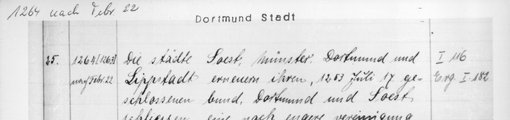 1264 nach Febr 22
Dortmund Stadt
25. 1264 [1263] Die städte Soest, Münster, Dortmund und I 116
nach Febr. 22 Lippstadt erneuern ihren, 1253 Juli 17 ge- Erg. I 182
schlossenen bund, Dortmund und Soest
schliessen eine noch engere vereinigung